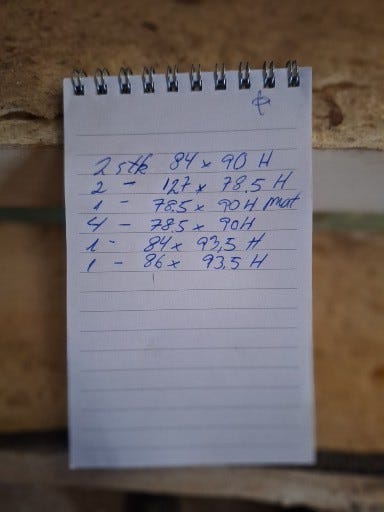 2 stk 84 x 90 H
2 - 127 x 78.5 H
1 - 78.5 x 90 H mat
4 - 78.5 x 90H
1 - 84 x 93,5 H
1 - 86 x 93.5 H